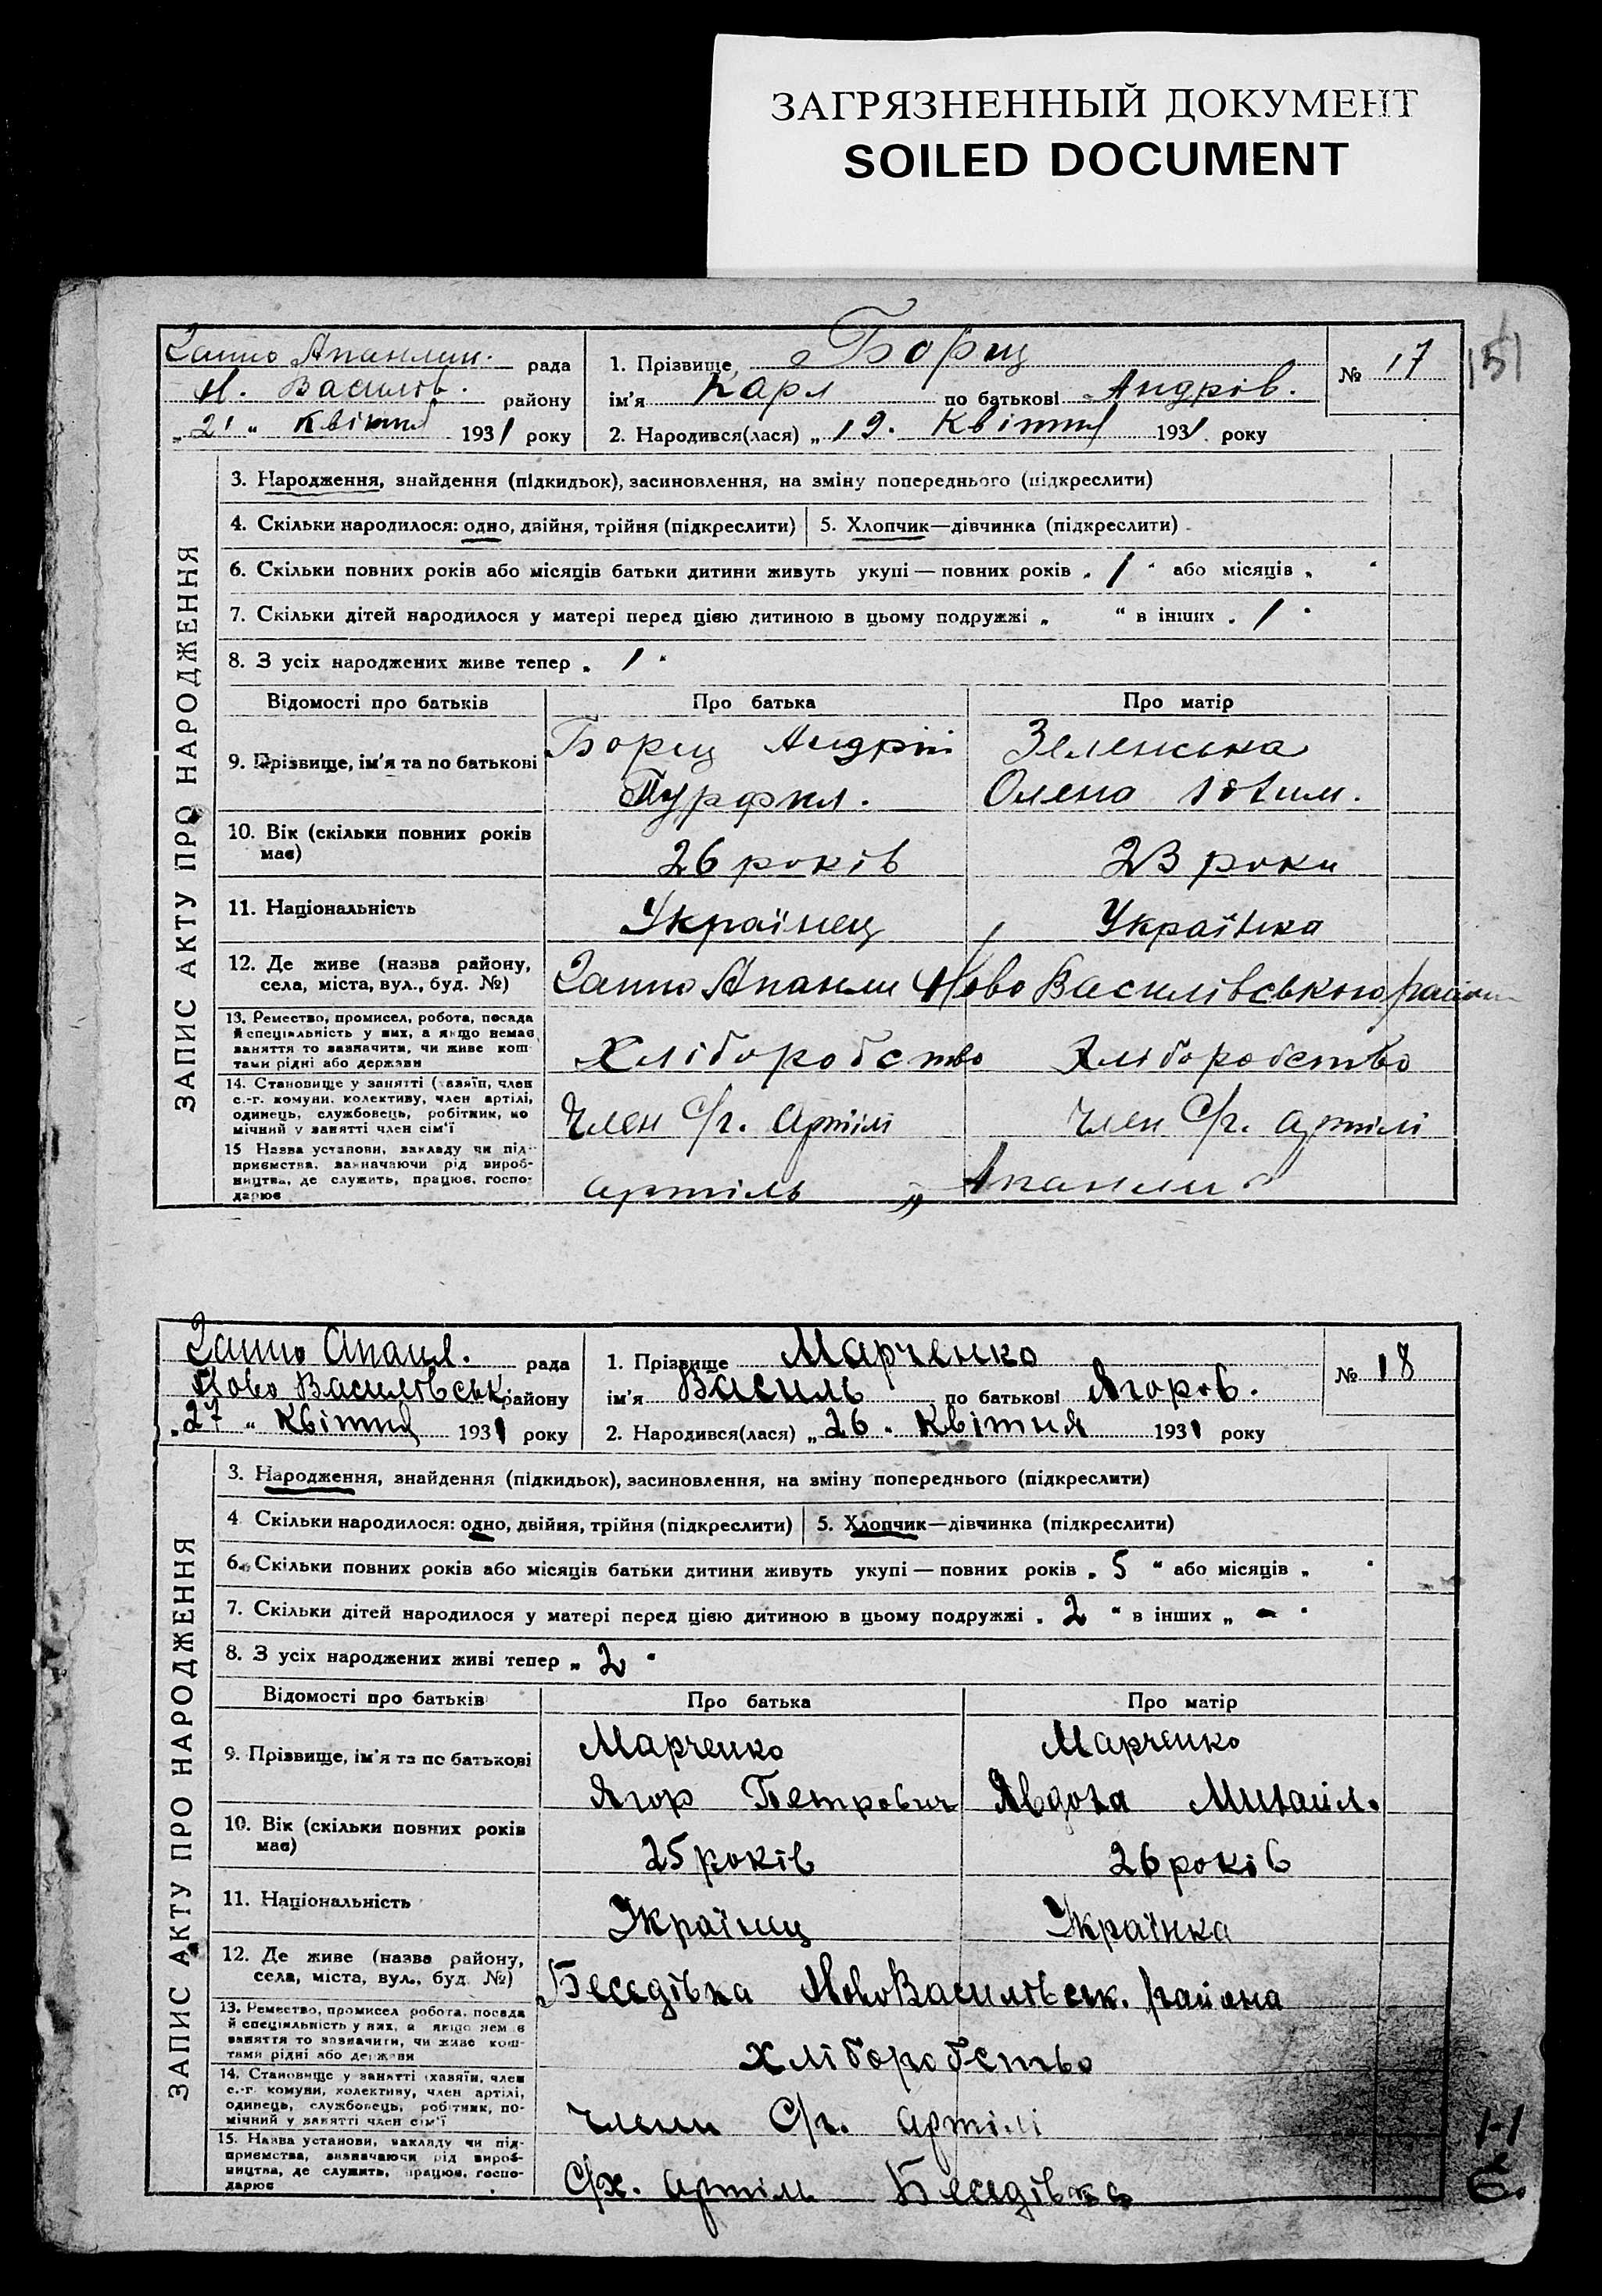 ЗАГРЯЗНЕННЫЙ ДОКУМЕНТ
SOILED DOCUMENT
151
ЗАПИС АКТУ ПРО НАРОДЖЕННЯ
рада
Н. Василів. району
„21“ Квітня 1931 року
1. Прізвище Борщ
ім'я Карл по батькові Андрів.
2. Народився(лася) „19. Квітня 1931 року
№ 17
3. Народження, знайдення (підкидьок), засиновлення, на зміну попереднього (підкреслити)
4. Скільки народилося: одно, двійня, трійня (підкреслити)
5. Хлопчик—дівчинка (підкреслити)
6. Скільки повних років або місяців батьки дитини живуть укупі — повних років „1“ або місяців „ “
7. Скільки дітей народилося у матері перед цією дитиною в цьому подружжі „ “ в інших „1“
8. З усіх народжених живе тепер „1“
Відомості про батьків
Про батька
Про матір
9. Прізвище, ім'я та по батькові
Борщ Андрій
Зеленська
Олена
10. Вік (скільки повних років має)
26 років
23 роки
11. Національність
Українец
Українка
12. Де живе (назва району, села, міста, вул., буд. №)
Ново Василівського району
13. Ремество, промисел, робота, посада й спеціяльність у них, а якщо немає заняття то зазначити, чи живе коштами рідні або держави
Хліборобство
Хліборобство
14. Становище у занятті (хазяїн, член с.-г. комуни, колективу, член артілі, одинець, службовець, робітник, помічний у занятті член сім'ї
Член С/г. артілі
Член С/г. артілі
15 Назва установи, закладу чи підприємства, зазначаючи рід виробництва, де служить, працює, господарює
артіль „Апанли“
ЗАПИС АКТУ ПРО НАРОДЖЕННЯ
рада
Ново Василівськ району
„27“ Квітня 1931 року
1. Прізвище Марченко
ім'я Василь по батькові Ягоров.
2. Народився(лася) „26. Квітня 1931 року
№ 18
3. Народження, знайдення (підкидьок), засиновлення, на зміну попереднього (підкреслити)
4 Скільки народилося: одно, двійня, трійня (підкреслити)
5. Хлопчик—дівчинка (підкреслити)
6. Скільки повних років або місяців батьки дитини живуть укупі — повних років „5“ або місяців „ “
7. Скільки дітей народилося у матері перед цією дитиною в цьому подружжі „2“ в інших „-“
8. З усіх народжених живі тепер „2“
Відомості про батьків
Про батька
Про матір
9. Прізвище, ім'я та по батькові
Марченко
Марченко
Ягор Петрович
Явдоха Михайл.
10. Вік (скільки повних років має)
25 років
26 років
11. Національність
Українец
Українка
12. Де живе (назва району, села, міста, вул., буд. №)
Беседівка НовоВасилівськ. района
13. Ремество, промисел робота, посада й спеціяльність у них, а якщо немає заняття то зазначити, чи живе коштами рідні або держави
Хліборобство
14. Становище у занятті (хазяїн, член с.-г комуни, колективу, член артілі, одинець, службовець, робітник, помічний у занятті член сім'ї
члени С/г. артілі
15. Назва установи, закладу чи підприємства, зазначаючи рід виробництва, де служить, працює, господарює
С/х. артіль Беседівка